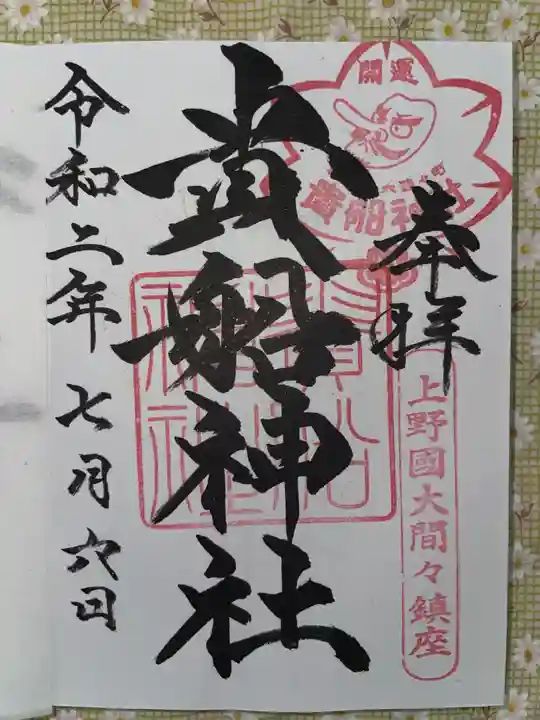 開運
貴船神社
奉拝
上野國大間々鎮座
貴船神社
貴船神社
令和二年七月六日